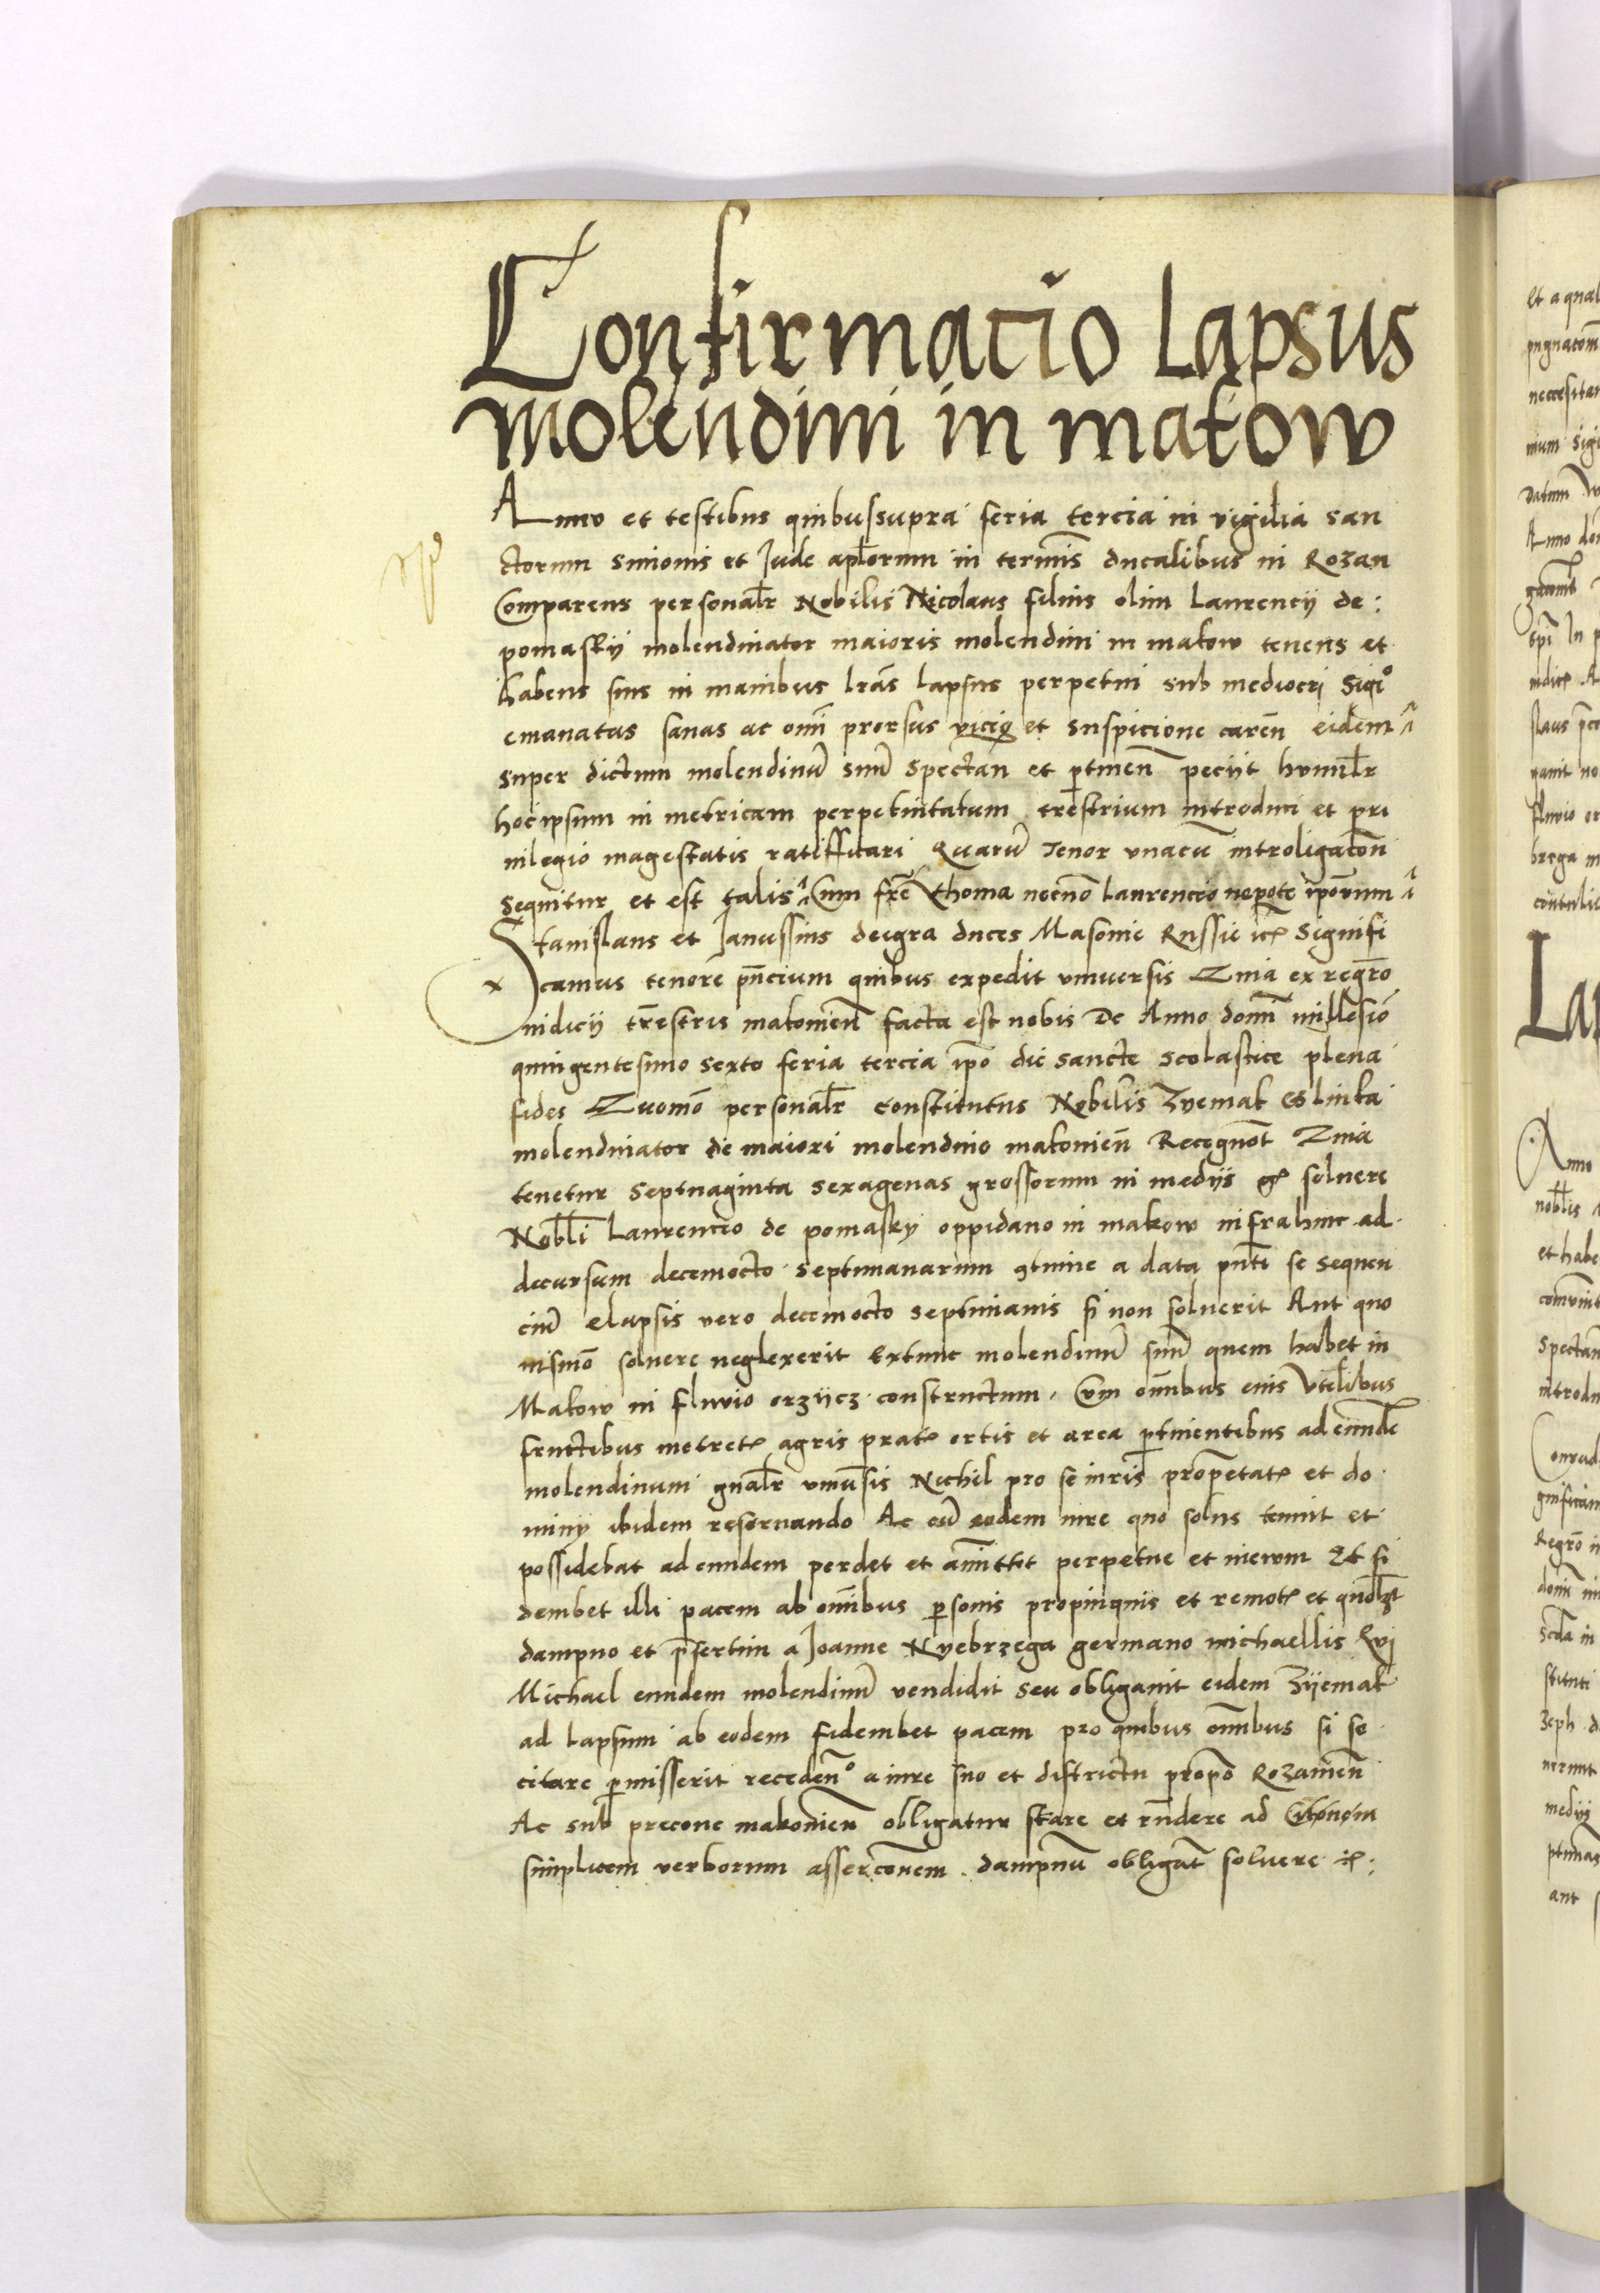 Confirmacio Lapsus
molendini in makow
Anno et testibus quibussupra feria tercia in vigilia san
ctorum Simonis et Jude apl̄orum in termīs ducalibus in Rozan
Comparens personalr̄ Nobilis Nicolaus filius olim Laurencij de:
pomasky molendinator maioris molendini in makow tenens et
habens suis in manibus lrās lapsus perpetui sub mediocri Sigº
emanatas sanas ac omī prorsus vicio et suspicione careñ eidem
super dictum molendinū suū spectan et ptineñ peciit humilr̄
hocipsum in metricam perpetuitatum trēstrium introduci et pri
uilegio magestatis ratifficari Quarū Tenor vnacū introligacōn
sequitur et est talis Cum frē Thoma necnō Laurencio nepote ipōrum
Stanislaus et Janussius deigra duces Masouie Russie etc̄ Signifi
camus tenore pñcium quibus expedit vniuersis Quia ex regr̄o
iudicij trēstris makouieñ facta est nobis De Anno domī millesiō
quingentesimo sexto feria tercia ipō die sancte Scolastice plena
fides Quomō personalr̄ constitutus Nobilis Zyemak Eslinka
molendinator de maiori molendino makouieñ Recognōt Quia
tenetur Septuaginta sexagenas grossorum in medijs gr̄ soluere
Nobl̄i Laurencio de pomasky oppidano in makow infrahinc ad
decursum decemocto Septimanarum 9tinue a data pñti se sequen
ciū elapsis vero decemocto septimanis si non soluerit Aut quo
uismō soluere neglexerit Extunc molendinū suū quem habet in
Makow in fluuio orzijcz constructum. Cum omībus eius Vtilibus
fructibus metret̄ agris prat̄ ortis et area ptinentibus ad eundē
molendinum gñalr̄ vniūsis Nichil pro se iuris proprietat̄ et do
minij ibidem reseruando Ac eū eodem iure quo solus tenuit et
possidebat ad eundem perdet et amittet perpetue et in ewm Et fi
deiubet illi pacem ab omībus psonis propinquis et remot̄ et quolz̄t
dampno et psertim a Joanne Nyebrzega germano michaellis Qui
Michael eundem molendinū vendidit seu obligauit eidem Zijemak
ad lapsum ab eodem fideiubet pacem pro quibus omībus si se
citare pmisserit recedendº a iure suo et districtu propō Rozaneñ
Ac sub precone makouieñ obligatur stare et rñdere ad Citōnem
simplicem verborum assercōnem. dampnū obligat̄ soluere etc̄: